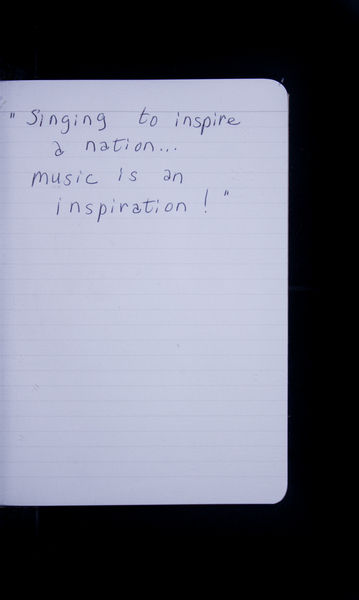 " Singing to inspire
a nation...
music is an
inspiration ! "